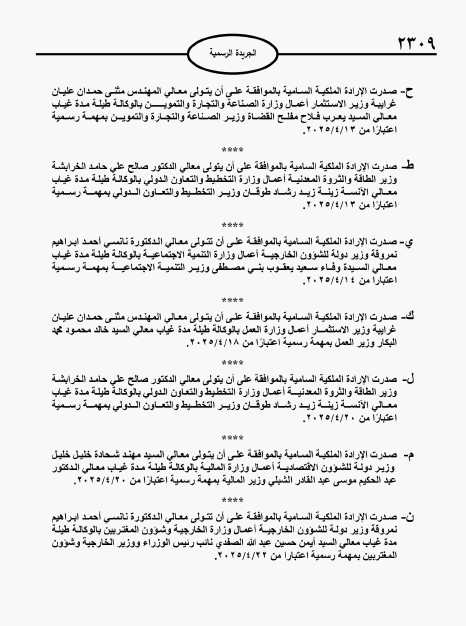 ٢٣٠٩
الجريدة الرسمية
ح- صدرت الإرادة الملكية السامية بالموافقة على أن يتولى معالي المهندس مثنى حمدان عليان
غرايبة وزير الاستثمار أعمال وزارة الصناعة والتجارة والتموين بالوكالة طيلة مدة غياب
معالي السيد يعرب فلاح مفلح القضاة وزير الصناعة والتجارة والتموين بمهمة رسمية
اعتبارًا من ٢٠٢٥/٤/١٣.
****
ط- صدرت الإرادة الملكية السامية بالموافقة على أن يتولى معالي الدكتور صالح علي حامد الخرابشة
وزير الطاقة والثروة المعدنية أعمال وزارة التخطيط والتعاون الدولي بالوكالة طيلة مدة غياب
معالي الآنسة زينة زيد رشاد طوقان وزير التخطيط والتعاون الدولي بمهمة رسمية
اعتبارًا من ٢٠٢٥/٤/١٣.
****
ي- صدرت الإرادة الملكية السامية بالموافقة على أن تتولى معالي الدكتورة نانسي أحمد ابراهيم
نمروقة وزير دولة للشؤون الخارجية أعمال وزارة التنمية الاجتماعية بالوكالة طيلة مدة غياب
معالي السيدة وفاء سعيد يعقوب بني مصطفى وزير التنمية الاجتماعية بمهمة رسمية
اعتبارًا من ٢٠٢٥/٤/١٤.
****
ك- صدرت الإرادة الملكية السامية بالموافقة على أن يتولى معالي المهندس مثنى حمدان عليان
غرايبة وزير الاستثمار أعمال وزارة العمل بالوكالة طيلة مدة غياب معالي السيد خالد محمود محمد
البكار وزير العمل بمهمة رسمية اعتبارًا من ٢٠٢٥/٤/١٨.
****
ل- صدرت الإرادة الملكية السامية بالموافقة على أن يتولى معالي الدكتور صالح علي حامد الخرابشة
وزير الطاقة والثروة المعدنية أعمال وزارة التخطيط والتعاون الدولي بالوكالة طيلة مدة غياب
معالي الآنسة زينة زيد رشاد طوقان وزير التخطيط والتعاون الدولي بمهمة رسمية
اعتبارًا من ٢٠٢٥/٤/٢٠.
****
م- صدرت الإرادة الملكية السامية بالموافقة على أن يتولى معالي السيد مهند شحادة خليل خليل
وزير دولة للشؤون الاقتصادية أعمال وزارة المالية بالوكالة طيلة مدة غياب معالي الدكتور
عبد الحكيم موسى عبد القادر الشبلي وزير المالية بمهمة رسمية اعتبارًا من ٢٠٢٥/٤/٢٠.
****
ن- صدرت الإرادة الملكية السامية بالموافقة على أن تتولى معالي الدكتورة نانسي أحمد ابراهيم
نمروقة وزير دولة للشؤون الخارجية أعمال وزارة الخارجية وشؤون المغتربين بالوكالة طيلة
مدة غياب معالي السيد أيمن حسين عبد الله الصفدي نائب رئيس الوزراء ووزير الخارجية وشؤون
المغتربين بمهمة رسمية اعتبارا من ٢٠٢٥/٤/٢٢.